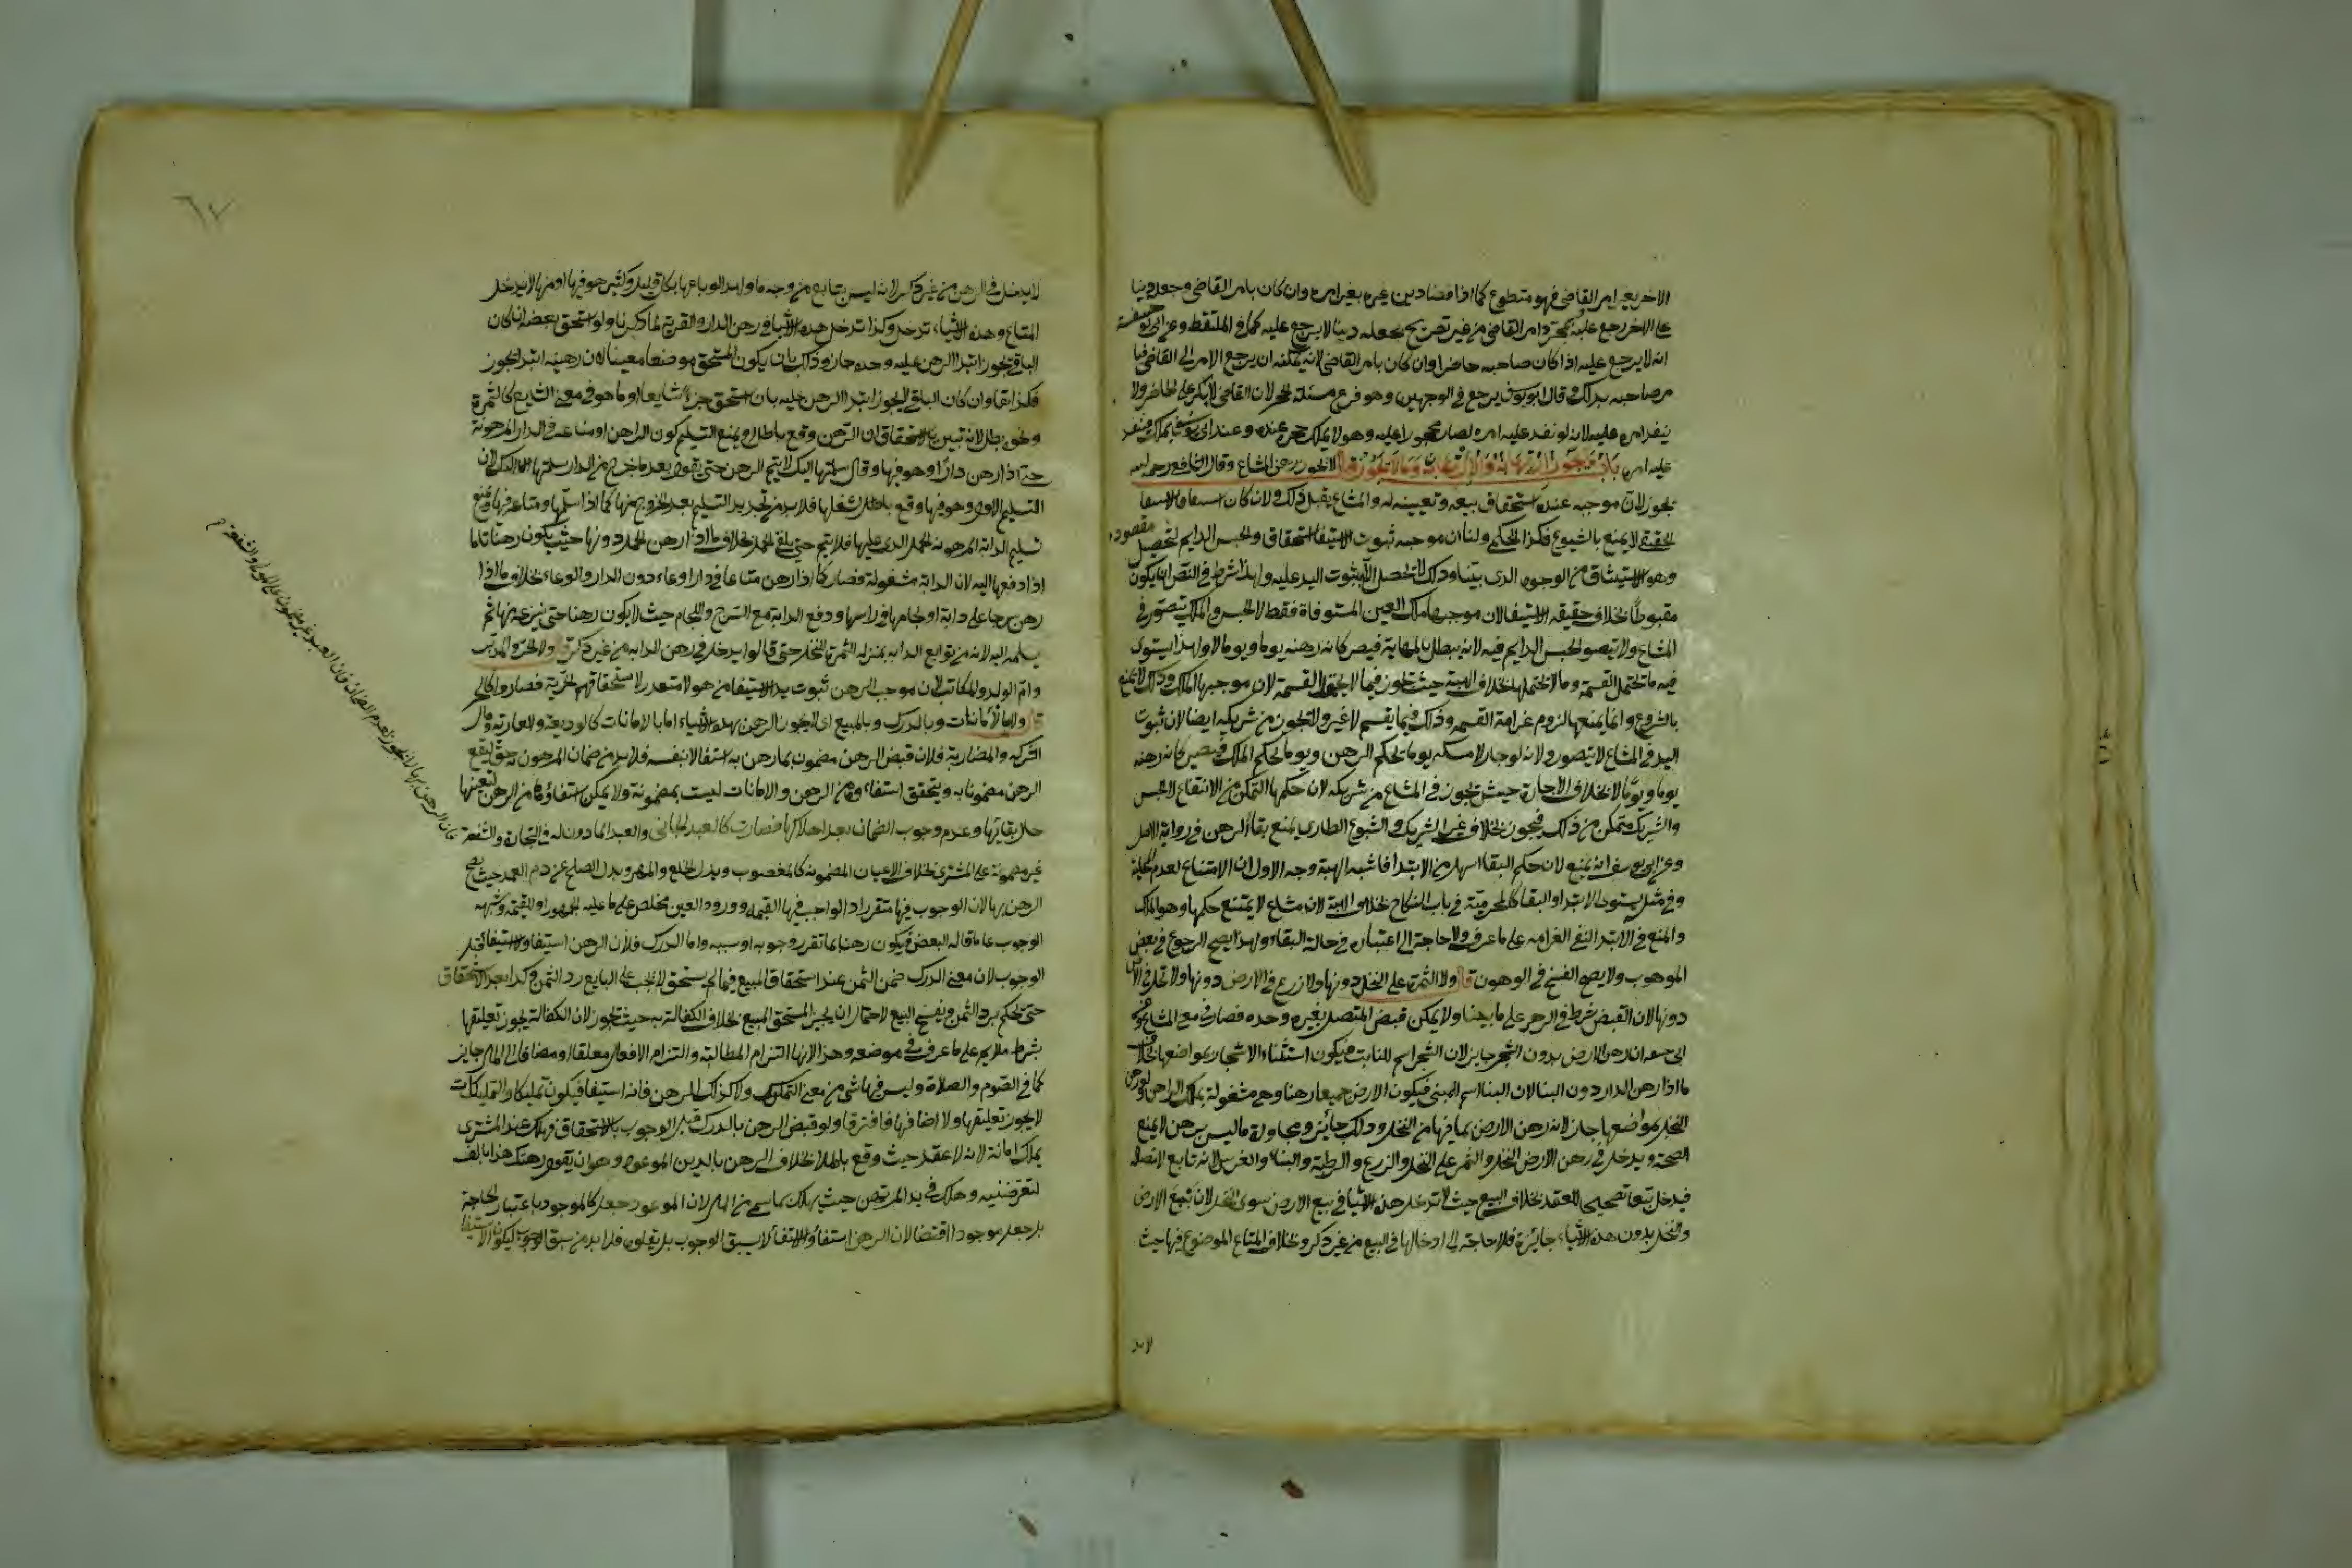 الاخر بغير امر القاضي فهو متطوع كما اذا قضا دين غيره بغير امره وان كان بامر القاضي وجعله دينا
على الاخر رجع عليه بمجرد امر القاضي من غير تصريح بجعله دينا لا يرجع عليه كما في الملتقط وعن ابي حنيفة
انه لا يرجع عليه اذا كان صاحبه حاضرا وان كان بامر القاضي لانه يمكنه ان يرجع الامر الى القاضي فيا
مر صاحبه بذلك وقال ابو يوسف يرجع في الوجهين وهو فرع مسئلة الحجر لان القاضي لا على الحاضر ولا
ينفذ امره عليه لانه لو نفذ عليه امره لصار محجورا عليه وهو لا يملك حجره عنده وعند ابي يوسف يملك فينفذ
عليه امره باب ما يجوز ارتهانه والارتهان به وما لا يجوز قال لا يجوز رهن المشاع وقال الشافعي رحمه الله
يجوز لان موجبه عنده استحقاق بيعه وتعيينه له والمشاع يقبل ذلك ولانه كان
الحقيقي لا يمنع بالشيوع فكذا الحكمي ولنا ان موجبه ثبوت الاستيفا استحقاق والحبس الدايم لتحصيل مقصوده
وهو الاستيثاق من الوجوه الذي بيناه وذلك لا يحصل الا بثبوت اليد عليه ولهذا شرط في النص ان يكون
مقبوضا بخلاف حقيقه الاستيفا لان موجبها ملك العين المستوفاة فقط لا الحبس والملك يتصور في
المشاع ولا يتصور الحبس الدايم فيه لانه يبطل بالمهاياة فيصير كانه رهنه يوما ويوما لا ولهذا يستوي
فيه ما يحتمل القسمة وما لا يحتملها بخلاف الهبة حيث تجوز فيما لا يحتمل القسمة لان موجبها الملك وذلك لا يمنع
بالشيوع وانما يمنعها لزوم غرامة القسمه وذلك فيما يقسم لا غير ولا تجوز من شريكه ايضا لان ثبوت
اليد في المشاع لا يتصور ولانه لو جاز لامسكه يوما بحكم الرهن ويوما بحكم الملك فيصير كانه رهنه
يوما ويوما لا بخلاف الاجارة حيث تجوز في المشاع من شريكه لان حكمها التمكن من الانتفاع لا الحبس
والشريك متمكن من ذلك فيجوز بخلاف غير الشريك والشيوع الطاري يمنع بقاء الرهن في رواية الاصل
وعن ابي يوسف انه لا يمنع لان حكم البقا اسهل من الابتدا فاشبه الهبة وجه الاول ان الامتناع لعدم المحلية
وفي مثله يستوي الابتدا والبقا كالمحرمية في باب النكاح بخلاف الهبة لان مشاع لا يمتنع حكمها وهو الملك
والمنع في الابتدا لنفي الغرامه على ما عرف ولا حاجة الى اعتباره في حالة البقاء ولهذا يصح الرجوع في بعض
الموهوب ولا يصح الفسخ في الموهون قال ولا الثمرة على النخل دونها ولا زرع في الارض دونها ولا نخل في الارض
دونها لان القبض شرط في الرهن على ما بينا ولا يمكن قبض المتصل بغيره وحده فصار في معنى المشاع وعن
ابي حنيفة ان رهن الارض بدون الشجر جايز لان الشجر اسم للنابت فيكون استثناء الاشجار بمواضعها بخلاف
ما اذا رهن الدار دون البنا لان البنا اسم المبني فيكون الارض جميعا رهنا وهي مشغولة بملك الراهن ولو رهن
النخل بمواضعها جاز لانه رهن الارض بما فيها من النخل وذلك جايز ومجاورة ما ليس برهن لا يمنع
الصحة ويدخل في رهن الارض النخل والثمر على النخل والزرع والرطبة والبناء والغرس لانه تابع لاتصاله
فيدخل تبعا تصحيحا للعقد بخلاف البيع حيث لا تدخل هذه الاشيا في بيع الارض سوى النخل لان بيع الارض
والنخل بدون هذه الاشياء جائزة فلا حاجة الى ادخالها في البيع من غير ذكر وبخلاف المتاع الموضوع فيها حيث
لا يد
٦٧
لا يدخل في الرهن من غير ذكر لانه ليس بتابع من وجه ما ولهذا لو باعها بكل قليل وكثير هو فيها او منها لا يدخل
المتاع وهذه الاشياء تدخل وكذا تدخل هذه الاشياء في رهن الدار والقرية لما ذكرنا ولو استحق بعضه ان كان
الباقي يجوز ابتدا الرهن عليه وحده جاز وذلك بان يكون المستحق موضعا معينا لان رهنه ابتدا يجوز
فكذا بقا وان كان الباقي لا يجوز ابتدا الرهن عليه بان استحق جزء شايعا او ما هو في معنى الشايع كالثمرة
ونحوه بطل لانه تبين بالاستحقاق ان الرهن وقع باطلا ويمنع التسليم كون الراهن او متاعه في الدار المرهونة
حتى اذا رهن دارا وهو فيها وقال سلمتها اليك لا يتم الرهن حتى يقول بعد ما خرج من الدار سلمتها اليك لان
التسليم الاول وهو فيها وقع باطلا لشغلها فلا بد من تجديد التسليم بعد الخروج منها كما اذا سلمها ومتاعه فيها ويمنع
تسليم الدابة المرهونه الحمل الذي عليها فلا يتم حتى يلقي الحمل بخلاف ما اذا رهن الحمل دونها حيث يكون رهنا تاما
اذا دفعها اليه لان الدابة مشغولة فصار كما اذا رهن متاعا في دار او وعاء دون الدار والوعاء بخلاف ما اذا
رهن سرجا على دابة او لجاما في راسها ودفع الدابة مع السرج واللجام حيث لا يكون رهنا حتى ينزعه منها ثم
يسلمه اليه لانه من توابع الدابه بمنزله الثمرة للنخل حتى قالوا يدخل في رهن الدابه من غير ذكر قال ولا الحر والمدبر
وام الولد والمكاتب لان موجب الرهن ثبوت يد الاستيفا من هولا متعذر لاستحقاقهم الحرية فصاروا كالحر
قال ولا بالامانات وبالدرك وبالمبيع اي لا يجوز الرهن بهذه الاشياء اما بالامانات كالوديعة والعارية ومال
الشركه والمضاربة فلان قبض الرهن مضمون بما رهن به استيفا لا بنفسه فلا بد من ضمان المرهون به حتى يقع
الرهن مضمونا به ويتحقق استيفاء من الرهن والامانات ليست بمضمونة ولا يمكن استيفاؤها من الرهن لتعينها
حال بقائها وعدم وجوب الضمان بعد اهلاكها فصارت كالعبد الجاني والعبد الماذون له في التجارة والشفعة
غير مضمونة على المشتري بخلاف الاعيان المضمونه كالمغصوب وبدل الخلع والمهر وبدل الصلح عن دم العمد حيث يصح
الرهن بها لان الوجوب فيها متقرر اذ الواجب فيها القيمه وورود العين مخلص على ما عليه الجمهور او القيمة وشبهه
الوجوب على ما قاله البعض فيكون رهنا بما تقرر وجوبه او سببه واما الدرك فلان الرهن استيفا والاستيفا قبل
الوجوب لان معنى الدرك ضمن الثمن عند استحقاق المبيع فيما لم يستحق لا يجب على البايع رد الثمن وكذا بعد الاستحقاق
حتى يحكم برد الثمن ويفسخ البيع لاحتمال ان يجيز المستحق البيع بخلاف الكفالة به حيث تجوز لان الكفالة يجوز تعليقها
بشرط ملايم على ما عرف في موضعه وهذا لانها التزام المطالبة والتزام الافعال معلقا او مضافا الى المال جايز
كما في الصوم والصلاة وليس فيها شي من معنى التمليك ولا كذلك الرهن فانه استيفا فيكون تمليكا والتمليكات
لا يجوز تعليقها ولا اضافها فافترقا ولو قبض الرهن بالدرك قبل الوجوب بالاستحقاق فهلك عند المشتري
يهلك امانة لانه لا عقد حيث وقع باطلا بخلاف الرهن بالدين الموعود وهو ان يقول رهنتك هذا بالف
لتقرضنيه وهلك في يد المرتهن حيث يهلك بما سمى من المال لان الموعود جعل كالموجود باعتبار الحاجة
بل جعل موجودا اقتضا لان الرهن استيفاء والاستيفا لا يسبق الوجوب بل يتلوه فلا بد من سبق الوجوب ليكون الاستيفا
فان الرهن بها لا يجوز لعدم الضمان فان العبد غير مضمون على المولى والشفعة م